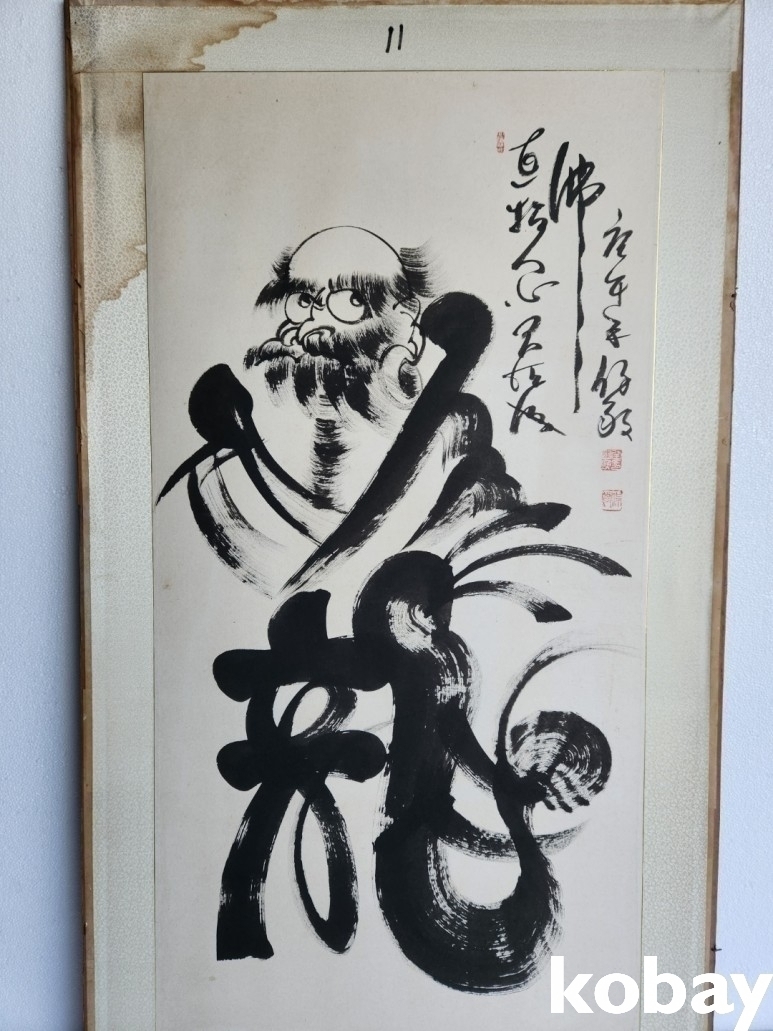 11
直指人心見性成
佛
庚午
龍
kobay